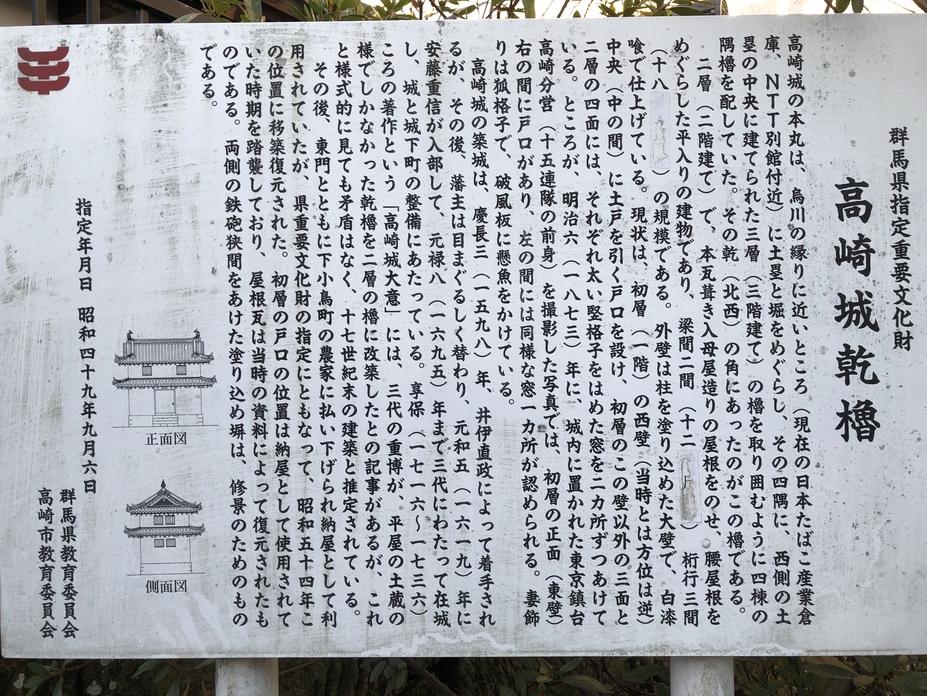 群馬県指定重要文化財
高崎城乾櫓
高崎城の本丸は、烏川の縁りに近いところ（現在の日本たばこ産業倉
庫、NTT別館付近）に土塁と堀をめぐらし、その四隅に、西側の土
塁の中央に建てられた三層（三階建て）の櫓を取り囲むように四棟の
隅櫓を配していた。その乾（北西）の角にあったのがこの櫓である。
二層（二階建て）で、本瓦葺き入母屋造りの屋根をのせ、腰屋根を
めぐらした平入りの建物であり、梁間二間（十二　）桁行三間
（十八　）の規模である。外壁は柱を塗り込めた大壁で、白漆
喰で仕上げている。現状は、初層（一階）の西壁（当時とは方位は逆）
中央（中の間）に土戸を引く戸口を設け、初層のこの壁以外の三面と
二層の四面には、それぞれ太い竪格子をはめた窓を二カ所ずつあけて
いる。ところが、明治六（一八七三）年に、城内に置かれた東京鎮台
高崎分営（十五連隊の前身）を撮影した写真では、初層の正面（東壁）
右の間に戸口があり、左の間には同様な窓一カ所が認められる。妻飾
りは狐格子で、破風板に懸魚をかけている。
高崎城の築城は、慶長三（一五九八）年、井伊直政によって着手され
るが、その後、藩主は目まぐるしく替わり、元和五（一六一九）年に
安藤重信が入部して、元禄八（一六九五）年まで三代にわたって在城
し、城と城下町の整備にあたっている。享保（一七一六～一七三六）
ころの著作という「高崎城大意」には、三代の重博が、平屋の土蔵の
様でしかなかった乾櫓を二層の櫓に改築したとの記事があるが、これ
と様式的に見ても矛盾はなく、十七世紀末の建築と推定されている。
その後、東門とともに下小鳥町の農家に払い下げられ納屋として利
用されていたが、県重要文化財の指定にともなって、昭和五十四年こ
の位置に移築復元された。初層の戸口の位置は納屋として使用されて
いた時期を踏襲しており、屋根瓦は当時の資料によって復元されたも
のである。両側の鉄砲狭間をあけた塗り込め塀は、修景のためのもの
である。
正面図
側面図
指定年月日　昭和四十九年九月六日
群馬県教育委員会
高崎市教育委員会